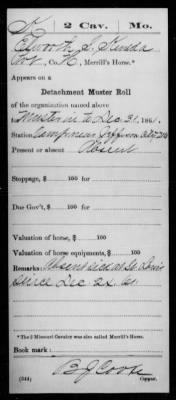 K 2 Cav. Mo.
Elworth S.
Pvt, Co. H, Merrill's Horse.*
Appears on a
Detachment Muster Roll
of the organization named above
for Muster in to Dec 31, 1861.
Station Camp near Jefferson City Mo
Present or absent Absent
Stoppage, $ 100 for
Due Gov't, $ 100 for
Valuation of horse, $ 100
Valuation of horse equipments, $ 100
Remarks: Absent sick at St. Louis
since Dec 25, 61
*The 2 Missouri Cavalry was also called Merrill's Horse.
Book mark:
(344) B J Cook
Copyist.